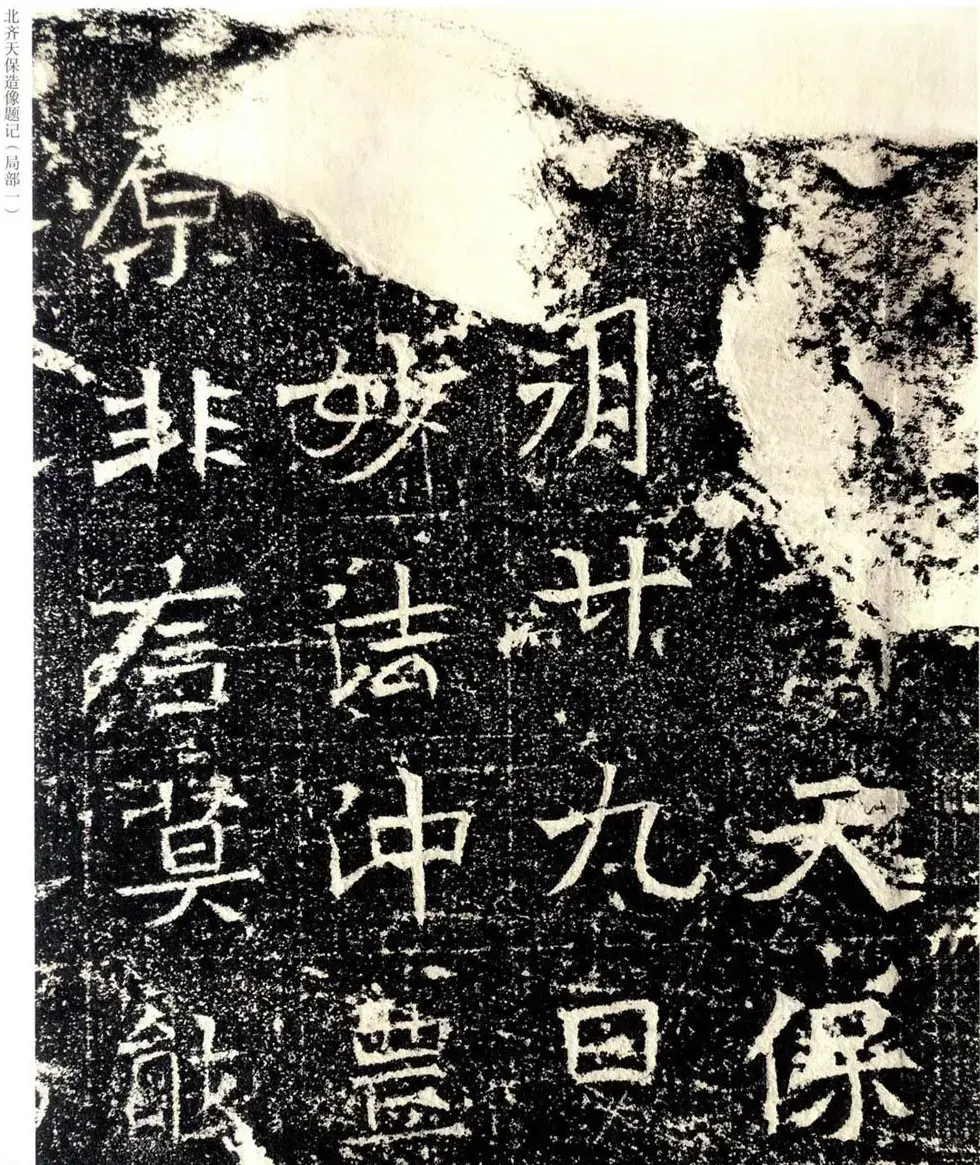 天保
廿九日
妙法沖
原非莫能
北齐天保造像题记（局部一）